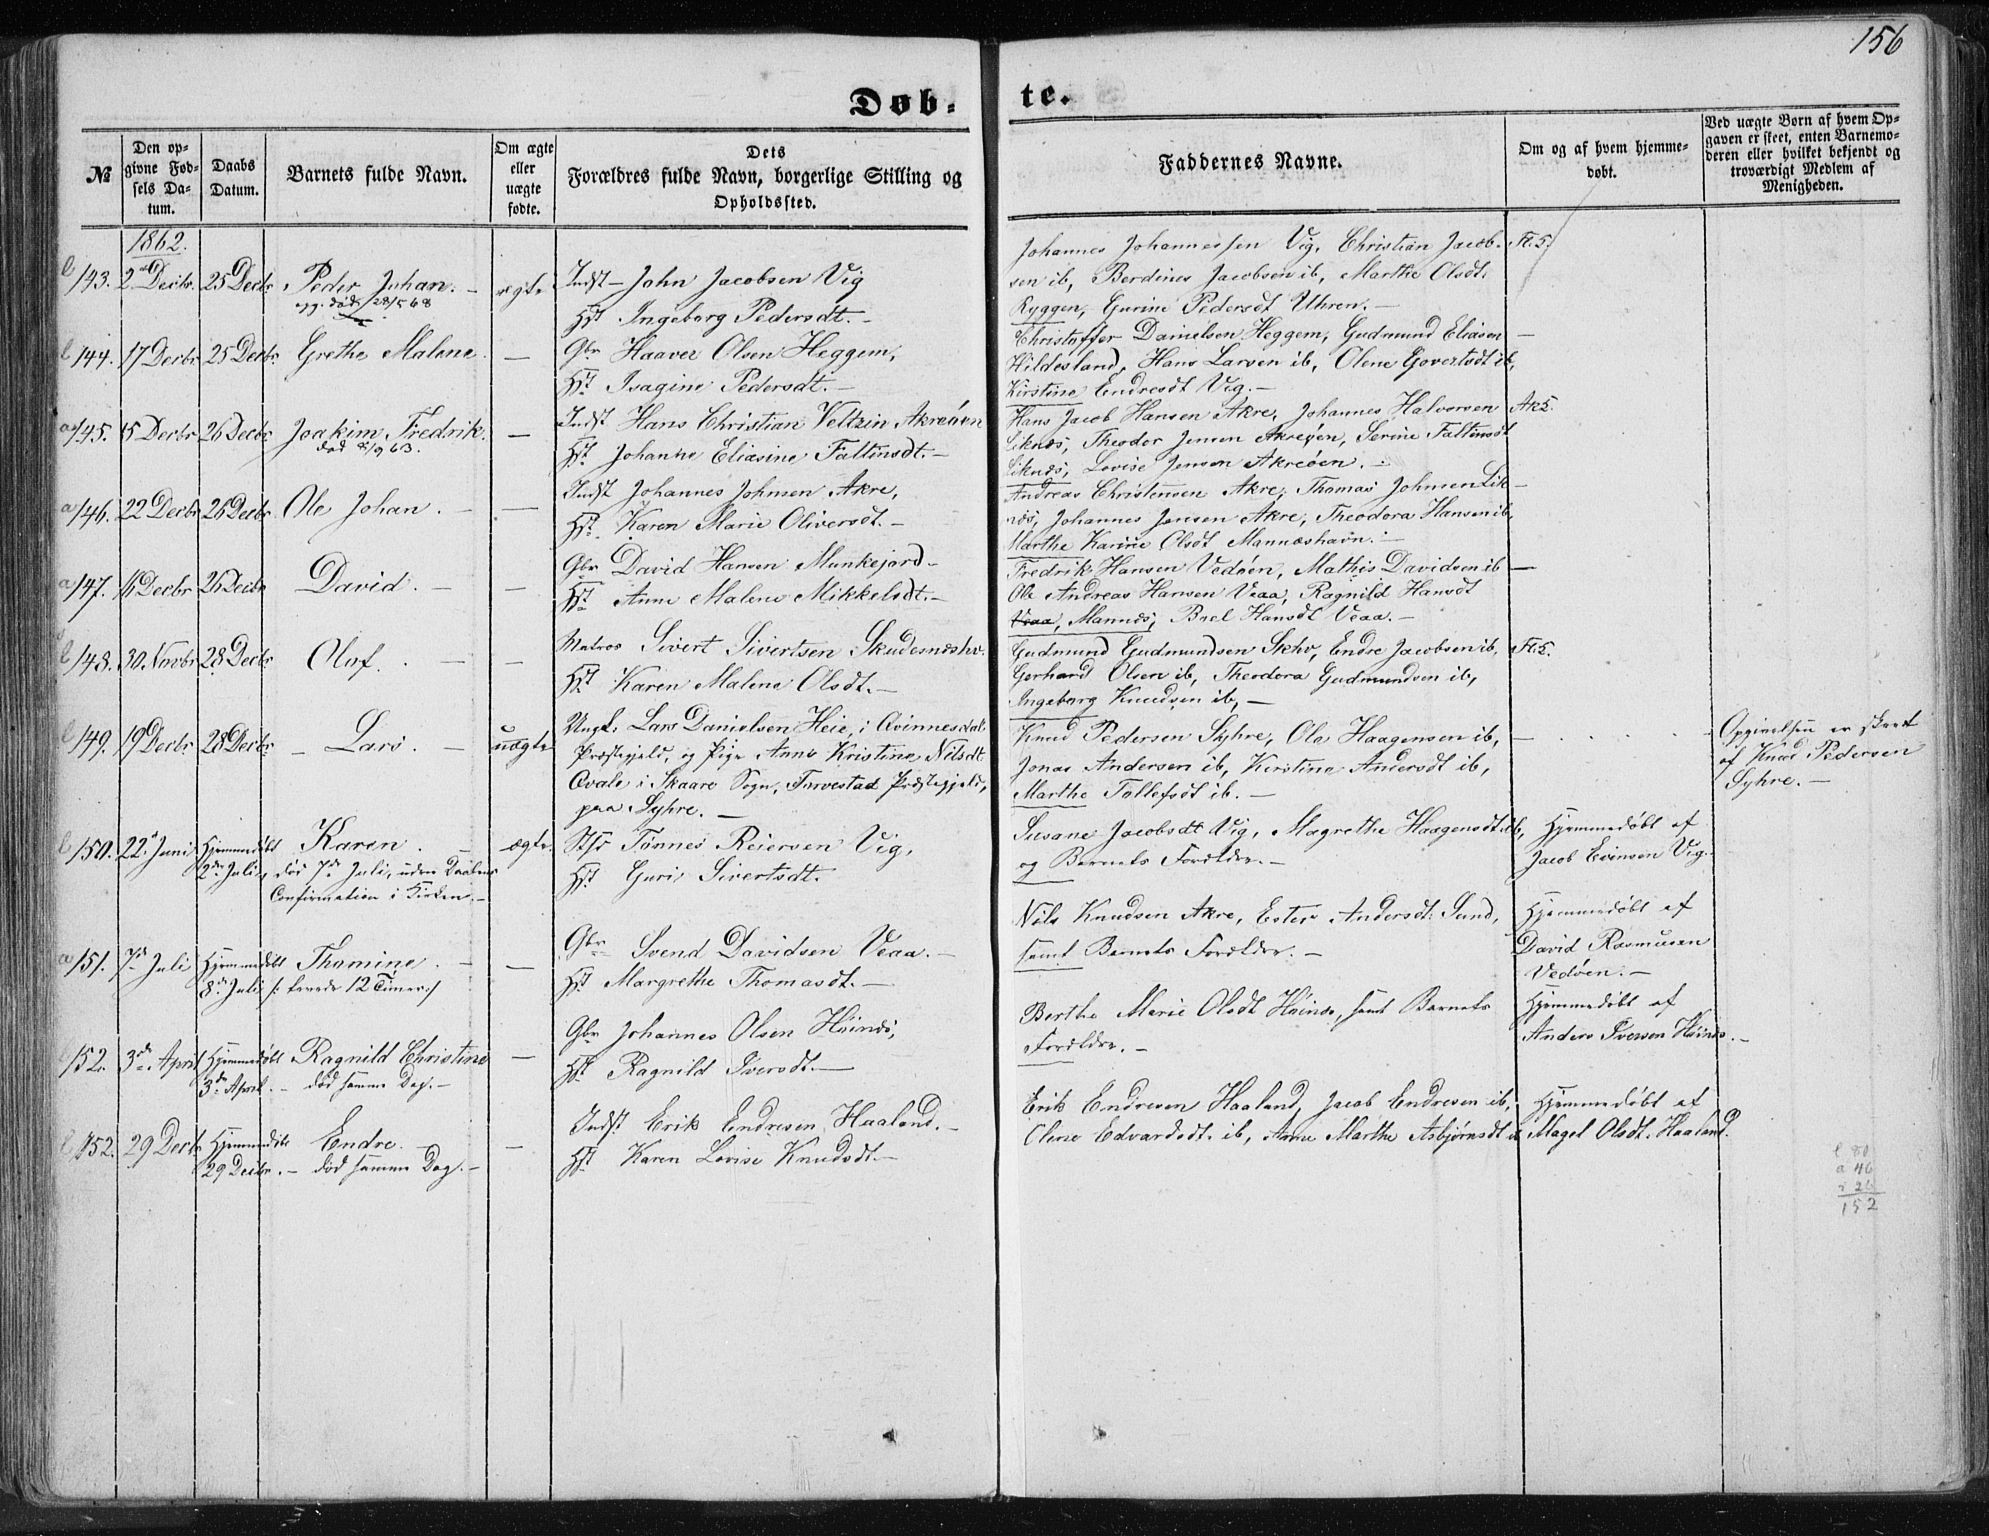 156
Døb- te.
№
Den opgivne Fødsels Datum.
Daabs Datum.
Barnets fulde Navn.
Om ægte eller uægte fødte.
Dets Forældres fulde Navn, borgerlige Stilling og Opholdssted.
Faddernes Navne.
Om og af hvem hjemmedøbt.
Ved uægte Børn af hvem Opgaven er skeet, enten Barnemoderen eller hvilket bekjendt og troværdigt Medlem af Menigheden.
1862.
143. 2 Decbr. 25 Decbr. Peder Johan. – ægte Indst – John Jacobsen Vig
død 28/5 68
Hst Ingeborg Pedersdt. –
Johannes Johannessen Vig, Christian Jacob-
sen ib, Berdines Jacobsen ib, Marthe Olsdt.
Ryggen, Gurine Pedersdt Uhren. –
144. 17 Decbr 25 Decbr. Grethe Malene. – Gbr Haaver Olsen Heggem,
Hst Isagine Pedersdt. –
Christoffer Danielsen Heggem, Gudmund Eliasen –
Hildesland, Hans Larsen ib, Olene Govertsdt ib,
Kirstine Endresdt Vig. –
145. 15 Decbr 26 Decbr. Joakim Fredrik. – Indst Hans Christian Veltzin Akreöen
Hst. Johanne Eliesine Faltinsdt. –
Hans Jacob Hansen Akre, Johannes Halvorsen
Liknæs, Theodor Jensen Akreöen, Serine Faltinsdt
Liknæs, Lovise Jensen Akreöen. –
146. 22 Decbr 26 Decbr. Ole Johan. – – Indst Johannes Johnsen Akre,
Hst. Karen Marie Oliversdt. –
Andreas Christensen Akre, Thomas Johnsen Lik- –
næs, Johannes Jensen Akre, Theodora Hansen ib,
Marthe Karine Olsdt Mannæshavn. –
147. 16 Decbr 26 Decbr David. – – Gbr David Hansen Munkejord –
Hst Anne Malene Mikkelsdt. –
Fredrik Hansen Vedöen, Mathis Davidsen ib –
Ole Andreas Hansen Veaa, Ragnild Hansdt
Veaa, Mannæs, Brel Hansdt Veaa. –
148. 30 Novbr 28 Decbr Olaf. – – Matros Sivert Sivertsen Skudesnæshv.
Hst Karen Malene Olsdt. –
Gudmund Gudmundsen Skhv, Endre Jacobsen ib,
Gerhard Olsen ib, Theodora Gudmundsen ib,
Ingeborg Knudsen ib, –
149. 19 Decbr 28 Decbr – Lars. – uægte Ungk. Lars Danielsen Heie, i Qvinnesdal
Præstegjeld, og Pige Anne Kristine Nilsdt
Qvale i Skaare Sogn, Torvestad Præstegjeld,
paa Syhre. –
Knud Pedersen Syhre, Ole Haagensen ib,
Jonas Andersen ib, Kirstine Andersdt ib,
Marthe Tollefsdt ib. –
Opgivelsen er skeet
af Knud Pedersen
Syhre. –
150. 22 Juni Hjemmedøbt Karen. – ægte. Tønnes Reiersen Vig,
2den Juli, død 7de Juli, uden Daabens
Confirmation i Kirken. –
Hst Guri Sivertsdt.
Susane Jacobsdt Vig, Magrethe Haagensdt ib,
og Barnets Forældre. –
Hjemmedøbt af
Jacob Evinsen Vig.
151. 7de Juli Hjemmedøbt Thomine. – – Gbr Svend Davidsen Veaa. –
8de Juli /: levede 12 Timer:/
Hst Margrethe Thomasdt. –
Nils Knudsen Akre, Ester Andersdt. Sund,
samt Barnets Forældre. –
Hjemmedøbt af
David Rasmusen
Vedöen. –
152. 3de April Hjemmedøbt Ragnild Christine – Gbr Johannes Olsen Höinæs,
3de April. – død samme Dag. –
Hst Ragnild Iversdt. –
Berthe Marie Olsdt Höinæs, samt Barnets
Forældre. –
Hjemmedøbt af
Anders Iversen Höinæs. –
152. 29 Decbr Hjemmedøbt Endre. – Indst Erik Endresen Haaland. –
29 Decbr. – død samme Dag. –
Hst Karen Lovise Knudsdt. –
Erik Endresen Haaland, Jacob Endresen ib,
Olene Edvardsdt. ib, Anne Marthe Asbjørnsdt
Hjemmedøbt af
Magel Olsdt. Haaland.
80
a 46
26
152